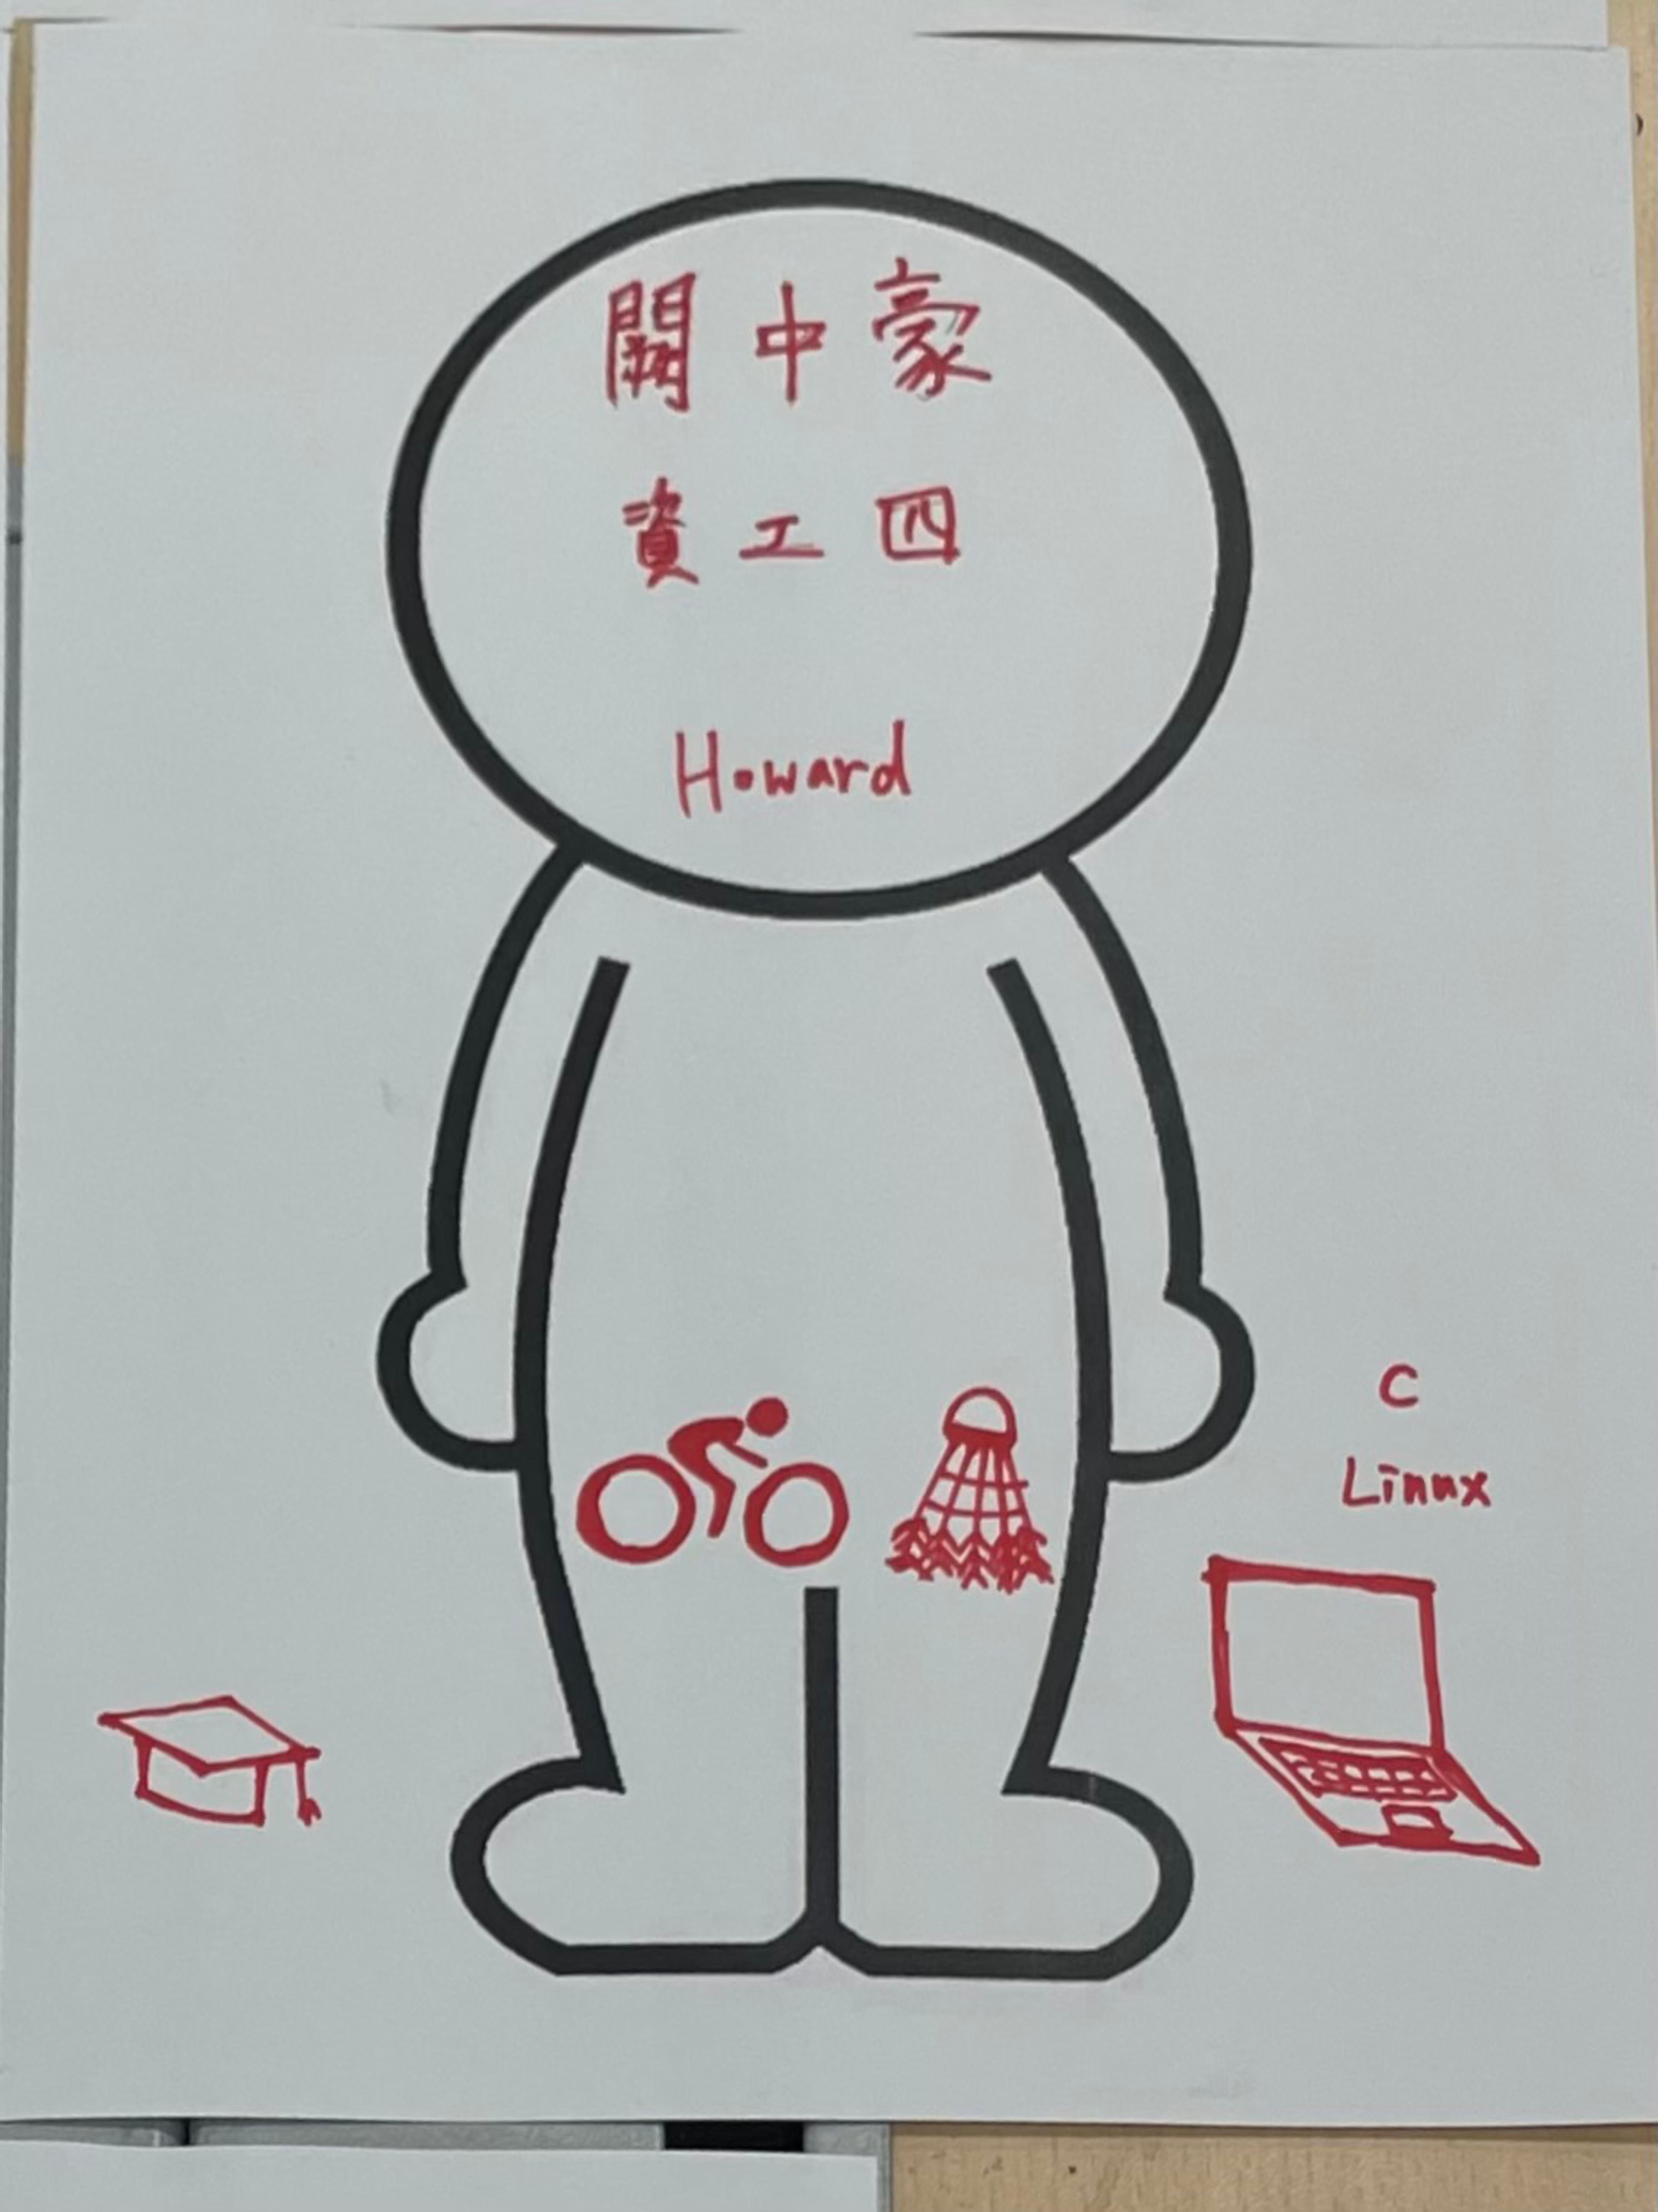 闕中豪
資工四
Howard
C
Linux